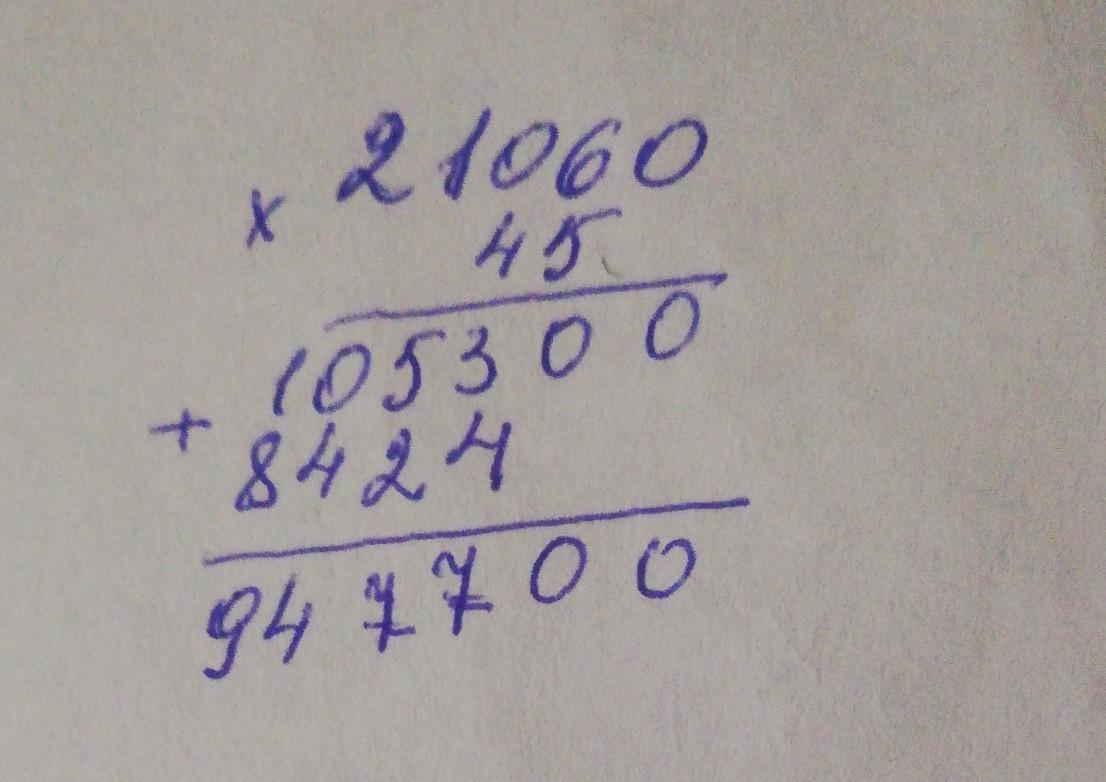 × 21060
45
105300
+ 8424
947700